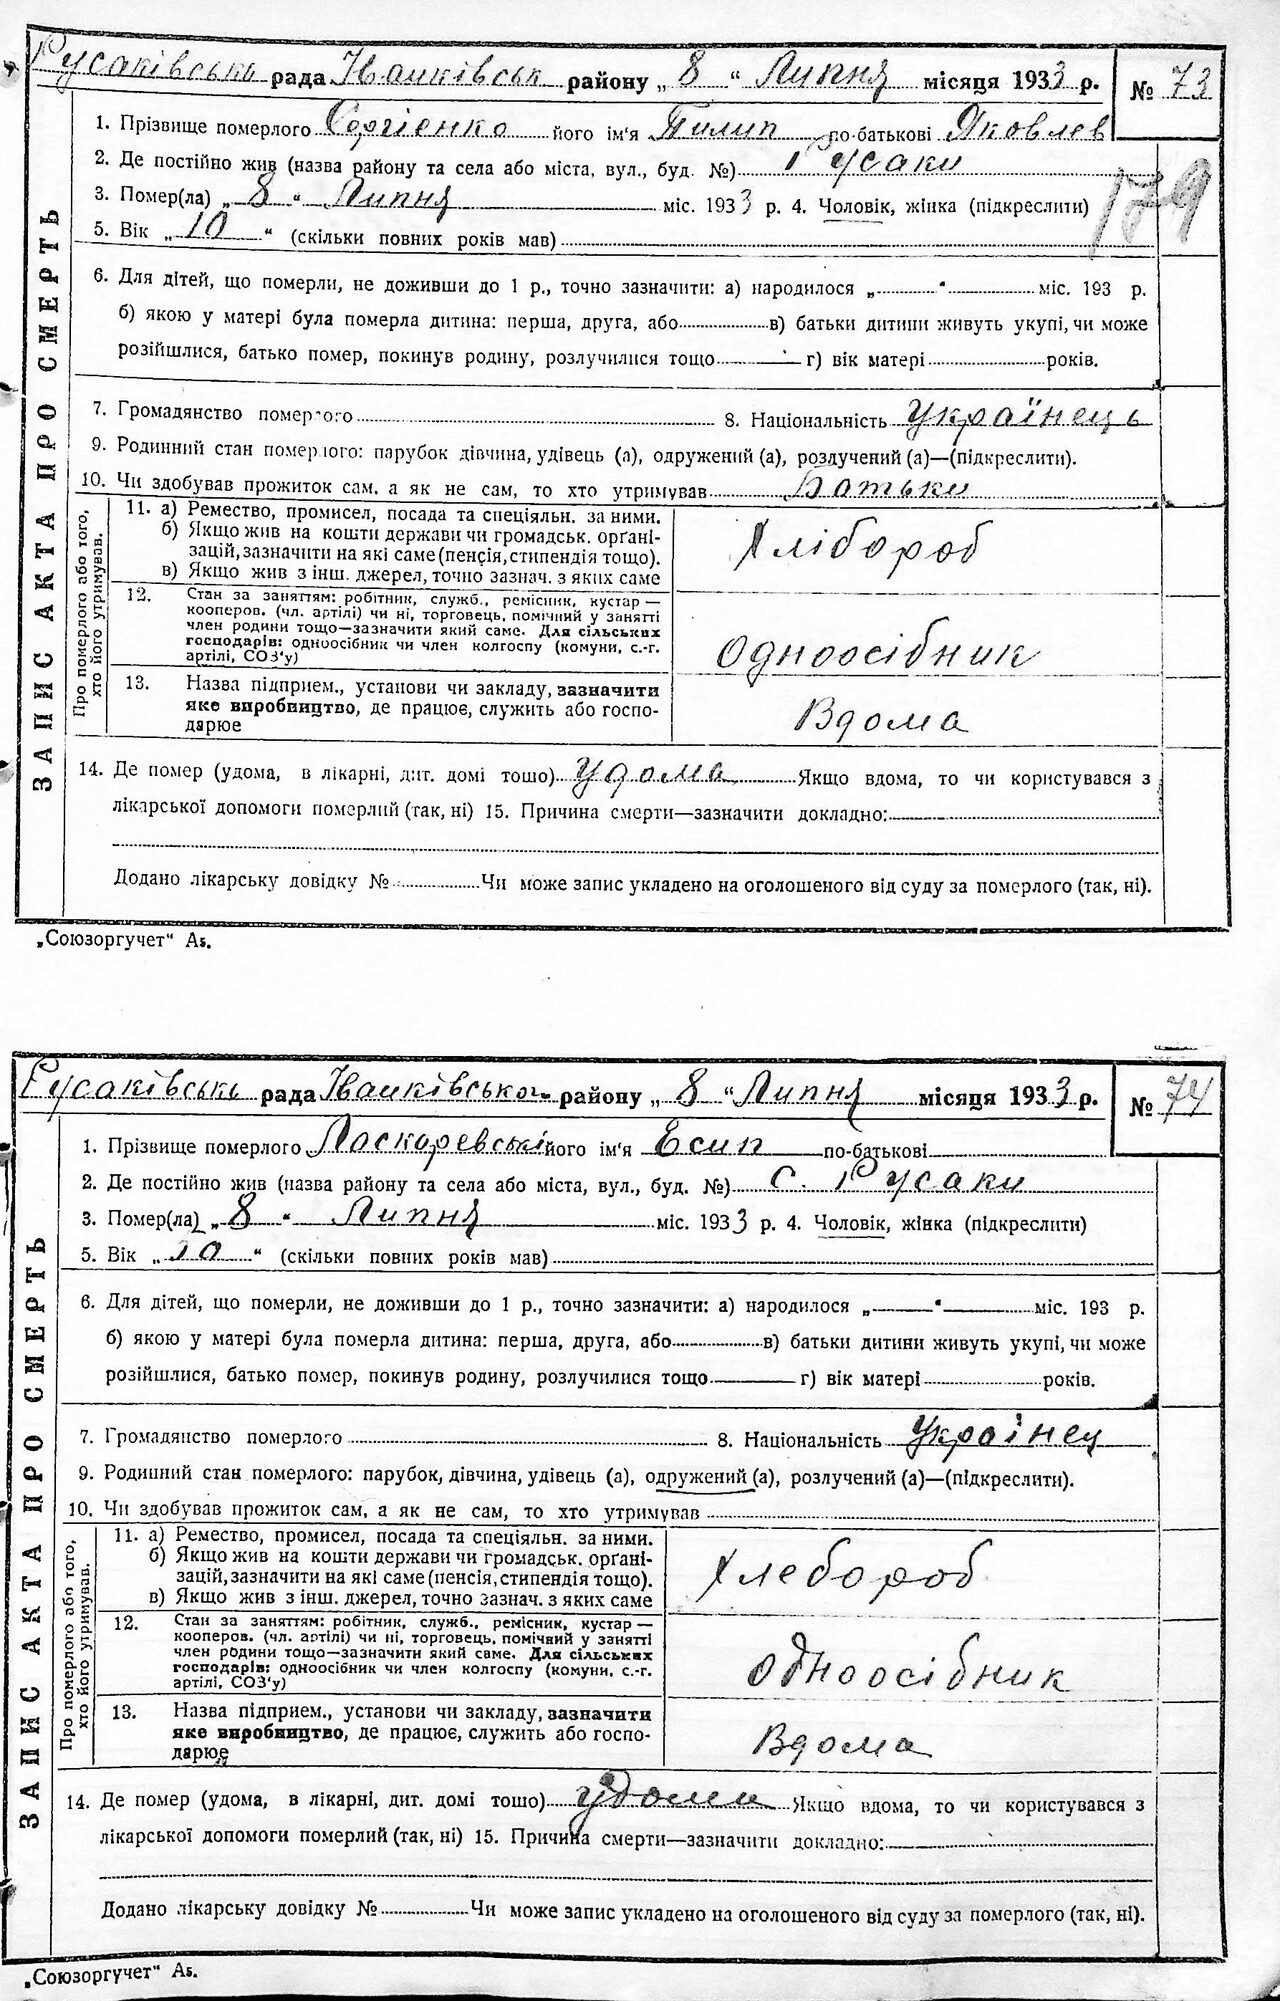 Русаківська рада Іванківськ район у „ 8 “ Липня місяця 1933 р. № 73
1. Прізвище померлого Сергієнко його ім'я Пилип по-батькові Яковлев
2. Де постійно жив (назва району та села або міста, вул., буд. №) Русаки
3. Помер(ла) „ 8 “ Липня міс. 1933 р. 4. Чоловік, жінка (підкреслити)
179
5. Вік „ 10 “ (скільки повних років мав)
6. Для дітей, що померли, не доживши до 1 р., точно зазначити: а) народилося „ “ міс. 193 р.
б) якою у матері була померла дитина: перша, друга, або в) батьки дитини живуть укупі, чи може
розійшлися, батько помер, покинув родину, розлучилися тощо г) вік матері років.
7. Громадянство померлого 8. Національність Українець
9. Родинний стан померлого: парубок дівчина, удівець (а), одружений (а), розлучений (а)—(підкреслити).
10. Чи здобував прожиток сам, а як не сам, то хто утримував Батьки
Про померлого або того, хто його утримував.
11. а) Ремество, промисел, посада та спеціяльн. за ними.
б) Якщо жив на кошти держави чи громадськ. орґані-
зацій, зазначити на які саме (пенсія, стипендія тощо).
в) Якщо жив з інш. джерел, точно зазнач. з яких саме
Хлібороб
12. Стан за заняттям: робітник, служб., ремісник, кустар —
кооперов. (чл. артілі) чи ні, торговець, помічний у занятті
член родини тощо—зазначити який саме. Для сільських
господарів: одноосібник чи член колгоспу (комуни, с.-г.
артілі, СОЗ'у)
Одноосібник
13. Назва підприєм., установи чи закладу, зазначити
яке виробництво, де працює, служить або госпо-
дарює
Вдома
14. Де помер (удома, в лікарні, дит. домі тошо) Удома Якщо вдома, то чи користувався з
лікарської допомоги померлий (так, ні) 15. Причина смерти—зазначити докладно:
Додано лікарську довідку № Чи може запис укладено на оголошеного від суду за померлого (так, ні).
ЗАПИС АКТА ПРО СМЕРТЬ
„Союзоргучет“ А₅.
Русаківська рада Іванківського району „ 8 “ Липня місяця 1933 р. № 74
1. Прізвище померлого Ласкаревські його ім'я Есип по-батькові
2. Де постійно жив (назва району та села або міста, вул., буд. №) с. Русаки
3. Помер(ла) „ 8 “ Липня міс. 1933 р. 4. Чоловік, жінка (підкреслити)
5. Вік „ 70 “ (скільки повних років мав)
6. Для дітей, що померли, не доживши до 1 р., точно зазначити: а) народилося „ “ міс. 193 р.
б) якою у матері була померла дитина: перша, друга, або в) батьки дитини живуть укупі, чи може
розійшлися, батько помер, покинув родину, розлучилися тощо г) вік матері років.
7. Громадянство померлого 8. Національність Українец
9. Родинний стан померлого: парубок, дівчина, удівець (а), одружений (а), розлучений (а)—(підкреслити).
10. Чи здобував прожиток сам, а як не сам, то хто утримував
Про померлого або того, хто його утримував.
11. а) Ремество, промисел, посада та спеціяльн. за ними.
б) Якщо жив на кошти держави чи громадськ. орґані-
зацій, зазначити на які саме (пенсія, стипендія тощо).
в) Якщо жив з інш. джерел, точно зазнач. з яких саме
Хлебороб
12. Стан за заняттям: робітник, служб., ремісник, кустар —
кооперов. (чл. артілі) чи ні, торговець, помічний у занятті
член родини тощо—зазначити який саме. Для сільських
господарів: одноосібник чи член колгоспу (комуни, с.-г.
артілі, СОЗ'у)
Одноосібник
13. Назва підприєм., установи чи закладу, зазначити
яке виробництво, де працює, служить або госпо-
дарює
Вдома
14. Де помер (удома, в лікарні, дит. домі тошо) Удома Якщо вдома, то чи користувався з
лікарської допомоги померлий (так, ні) 15. Причина смерти—зазначити докладно:
Додано лікарську довідку № Чи може запис укладено на оголошеного від суду за померлого (так, ні).
ЗАПИС АКТА ПРО СМЕРТЬ
„Союзоргучет“ А₅.